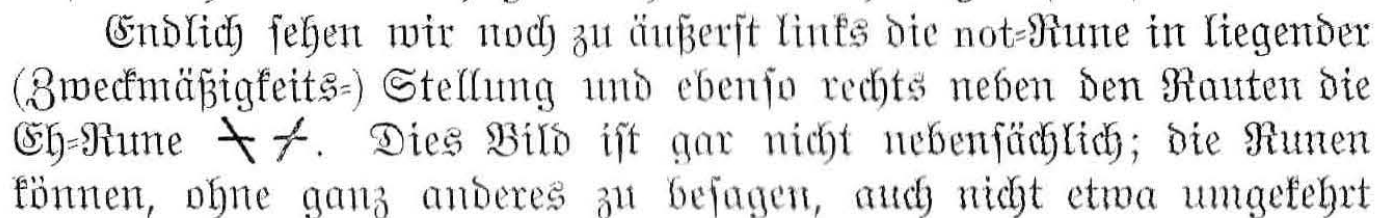 Endlich sehen wir noch zu äußerst links die not-Rune in liegender
(Zweckmäßigkeits-) Stellung und ebenso rechts neben den Rauten die
Eh-Rune. Dies Bild ist gar nicht nebensächlich; die Runen
können, ohne ganz anderes zu besagen, auch nicht etwa umgekehrt